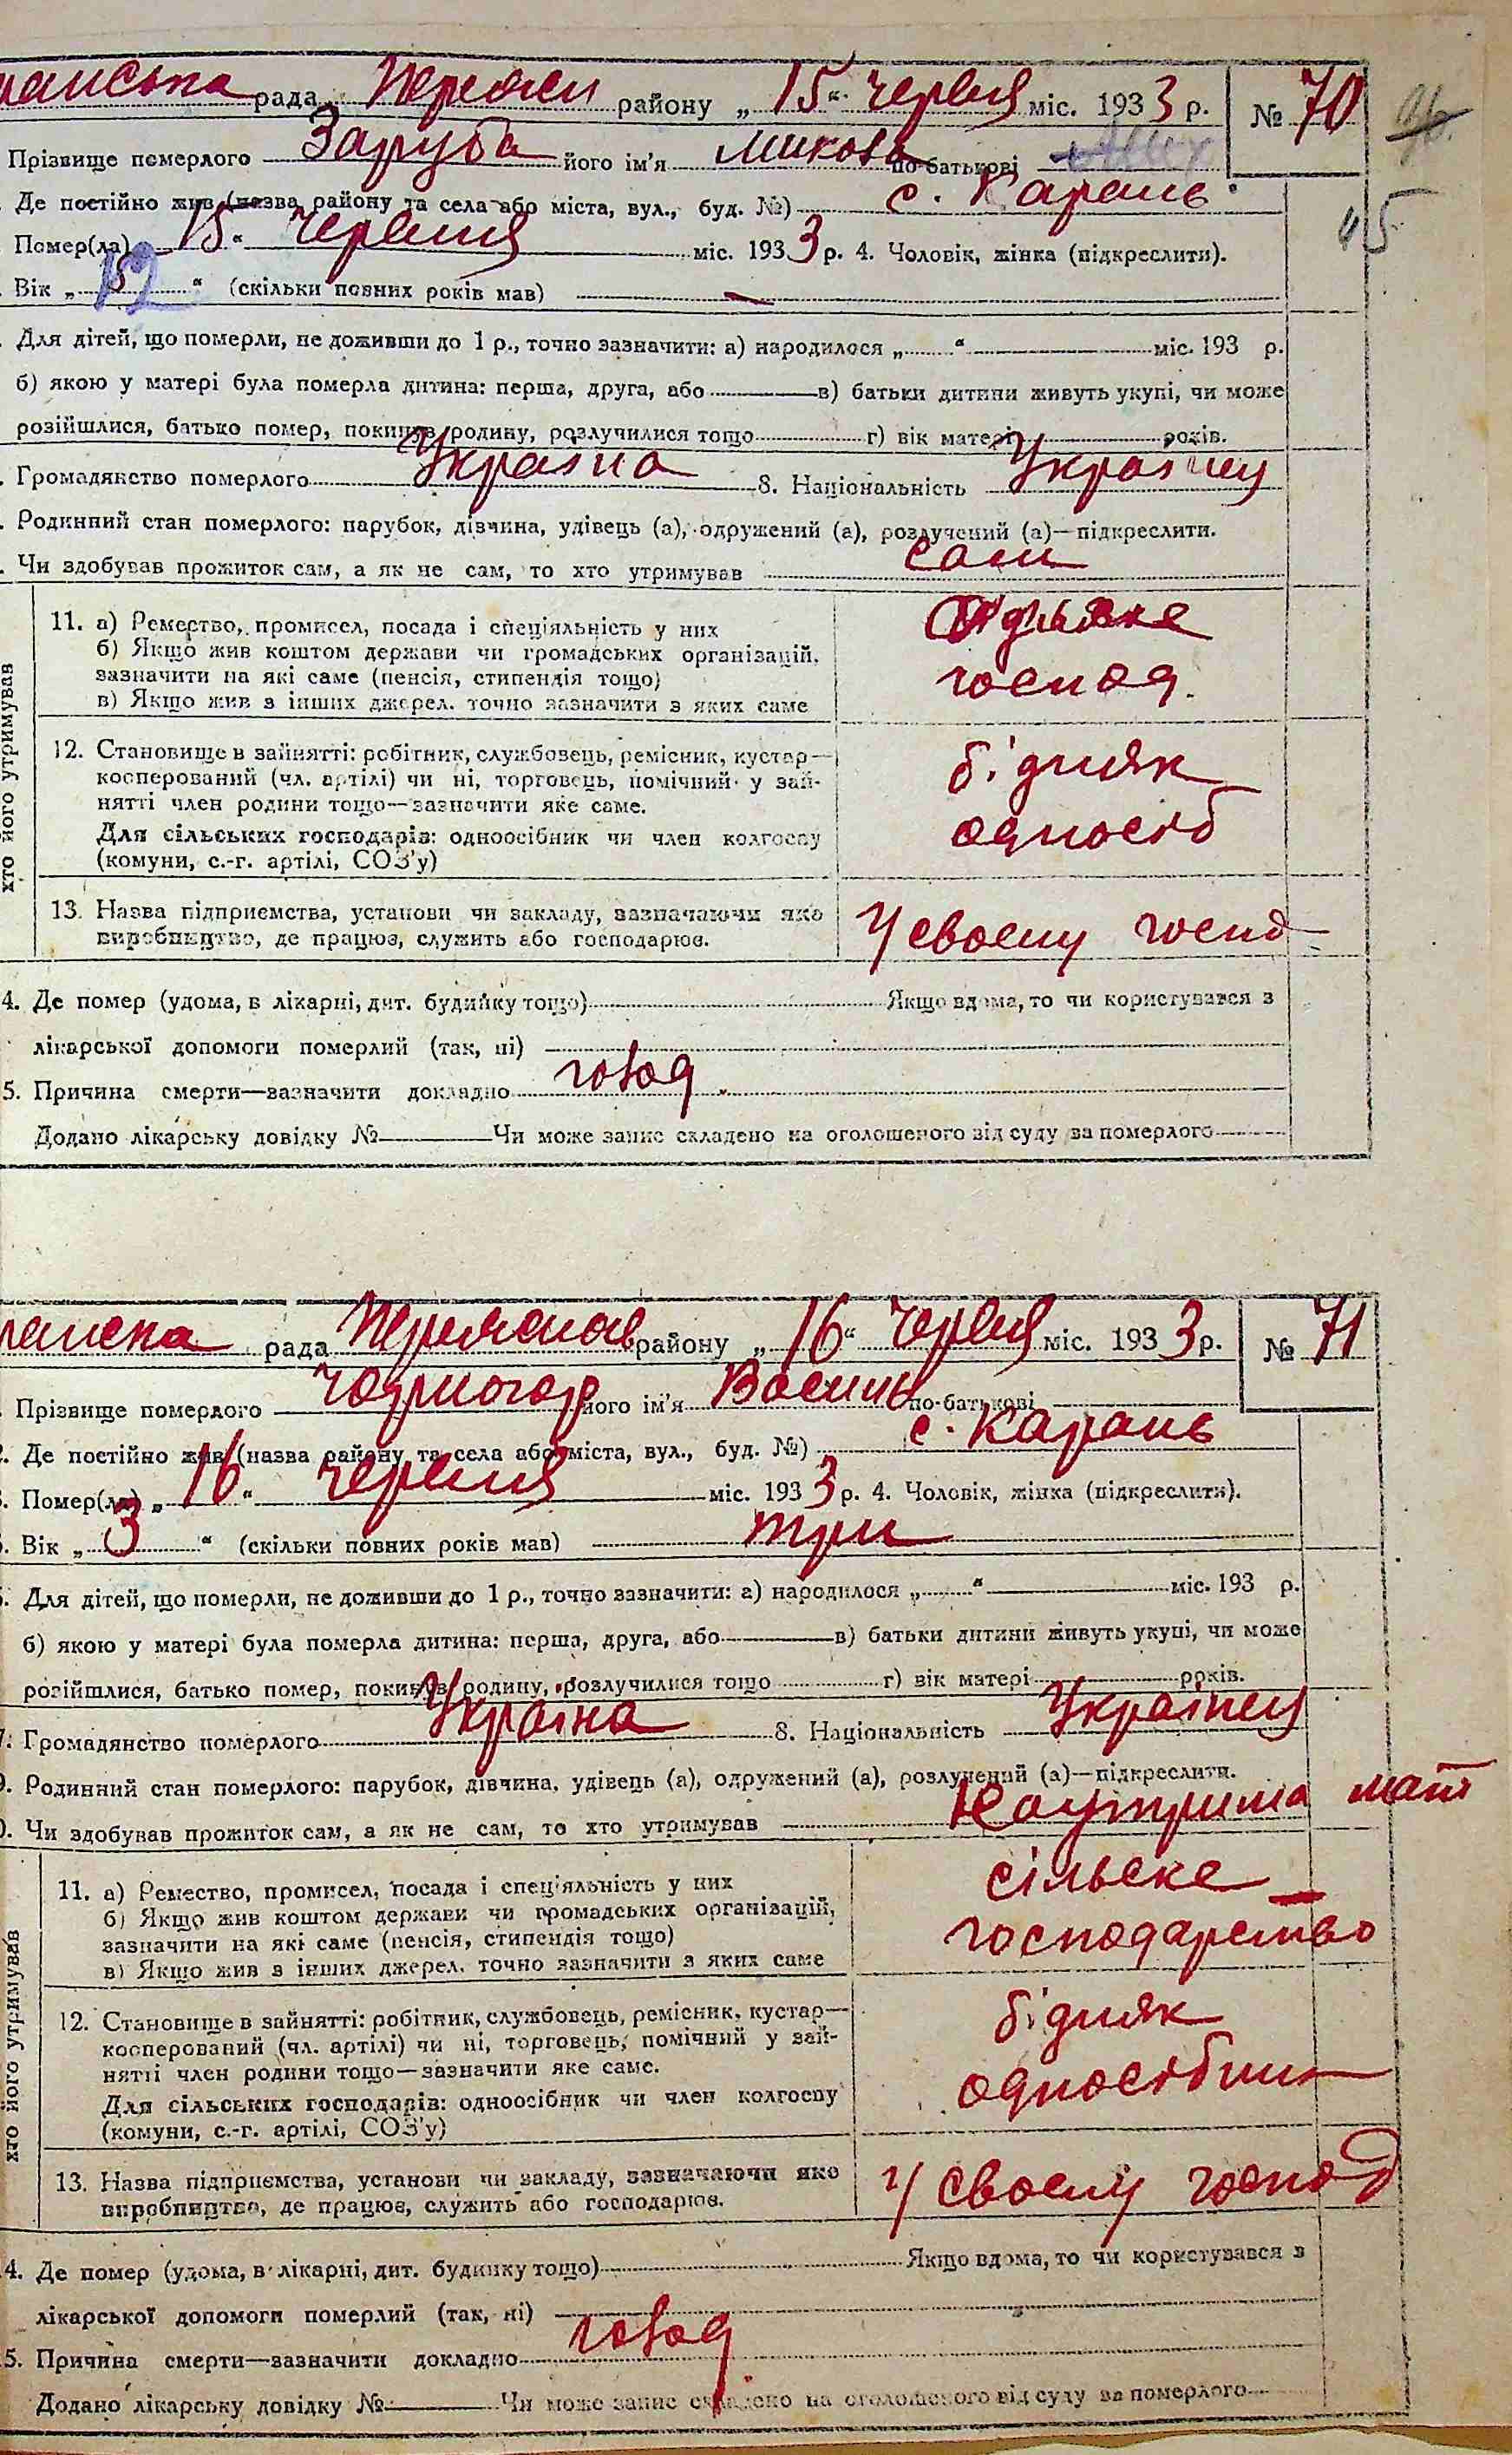 ранська рада Переясл району „ 15 “ червня міс. 1933 р. № 70
Прізвище померлого Заруба його ім'я Микола по-батькові
Де постійно жив (назва району та села або міста, вул., буд. №) с. Карань
45
Помер(ла) „ 15 “ червня міс. 1933 р. 4. Чоловік, жінка (підкреслити).
Вік „ 12 “ (скільки повних років мав) —
Для дітей, що померли, не доживши до 1 р., точно зазначити: а) народилося „ “ міс. 193 р.
б) якою у матері була померла дитина: перша, друга, або в) батьки дитини живуть укупі, чи може
розійшлися, батько помер, покинув родину, розлучилися тощо г) вік матері років.
Громадянство померлого Україна 8. Національність Українец
Родинний стан померлого: парубок, дівчина, удівець (а), одружений (а), розлучений (а)—підкреслити.
Чи здобував прожиток сам, а як не сам, то хто утримував сам
хто його утримував
11. а) Ремество, промисел, посада і спеціяльність у них
б) Якщо жив коштом держави чи громадських організацій,
зазначити на які саме (пенсія, стипендія тощо)
в) Якщо жив з інших джерел, точно зазначити з яких саме
господ.
12. Становище в зайнятті: робітник, службовець, ремісник, кустар—
кооперований (чл. артілі) чи ні, торговець, помічний у зай-
нятті член родини тощо—зазначити яке саме.
Для сільських господарів: одноосібник чи член колгоспу
(комуни, с.-г. артілі, СОЗ'у)
бідняк
одноосіб
13. Назва підприємства, установи чи закладу, зазначаючи яко
виробництво, де працює, служить або господарює.
У своему госпо
4. Де помер (удома, в лікарні, дит. будинку тощо) Якщо вдома, то чи користувався з
лікарської допомоги померлий (так, ні)
5. Причина смерти—зазначити докладно голод.
Додано лікарську довідку № Чи може запис складено на оголошеного від суду за померлого
ранска рада Переяслав району „ 16 “ червня міс. 1933 р. № 71
Прізвище померлого Чорногор його ім'я Василь по-батькові
. Де постійно жив (назва району та села або міста, вул., буд. №) с. Карань
. Помер(ла) „ 16 “ червня міс. 1933 р. 4. Чоловік, жінка (підкреслити).
. Вік „ 3 “ (скільки повних років мав) три
. Для дітей, що померли, не доживши до 1 р., точно зазначити: а) народилося „ “ міс. 193 р.
б) якою у матері була померла дитина: перша, друга, або в) батьки дитини живуть укупі, чи може
розійшлися, батько помер, покинув родину, розлучилися тощо г) вік матері років.
7. Громадянство померлого Україна 8. Національність Українец
9. Родинний стан померлого: парубок, дівчина, удівець (а), одружений (а), розлучений (а)—підкреслити.
0. Чи здобував прожиток сам, а як не сам, то хто утримував На утрима маті
хто його утримував
11. а) Ремество, промисел, посада і спеціяльність у них
б) Якщо жив коштом держави чи громадських організацій,
зазначити на які саме (пенсія, стипендія тощо)
в) Якщо жив з інших джерел, точно зазначити з яких саме
сільске
господарство
12. Становище в зайнятті: робітник, службовець, ремісник, кустар—
кооперований (чл. артілі) чи ні, торговець, помічний у зай-
нятті член родини тощо—зазначити яке саме.
Для сільських господарів: одноосібник чи член колгоспу
(комуни, с.-г. артілі, СОЗ'у)
бідняк
одноосібник
13. Назва підприємства, установи чи закладу, зазначаючи яко
виробництво, де працює, служить або господарює.
У своєму господ
4. Де помер (удома, в лікарні, дит. будинку тощо) Якщо вдома, то чи користувався з
лікарської допомоги померлий (так, ні)
5. Причина смерти—зазначити докладно голод
Додано лікарську довідку № Чи може запис складено на оголошеного від суду за померлого